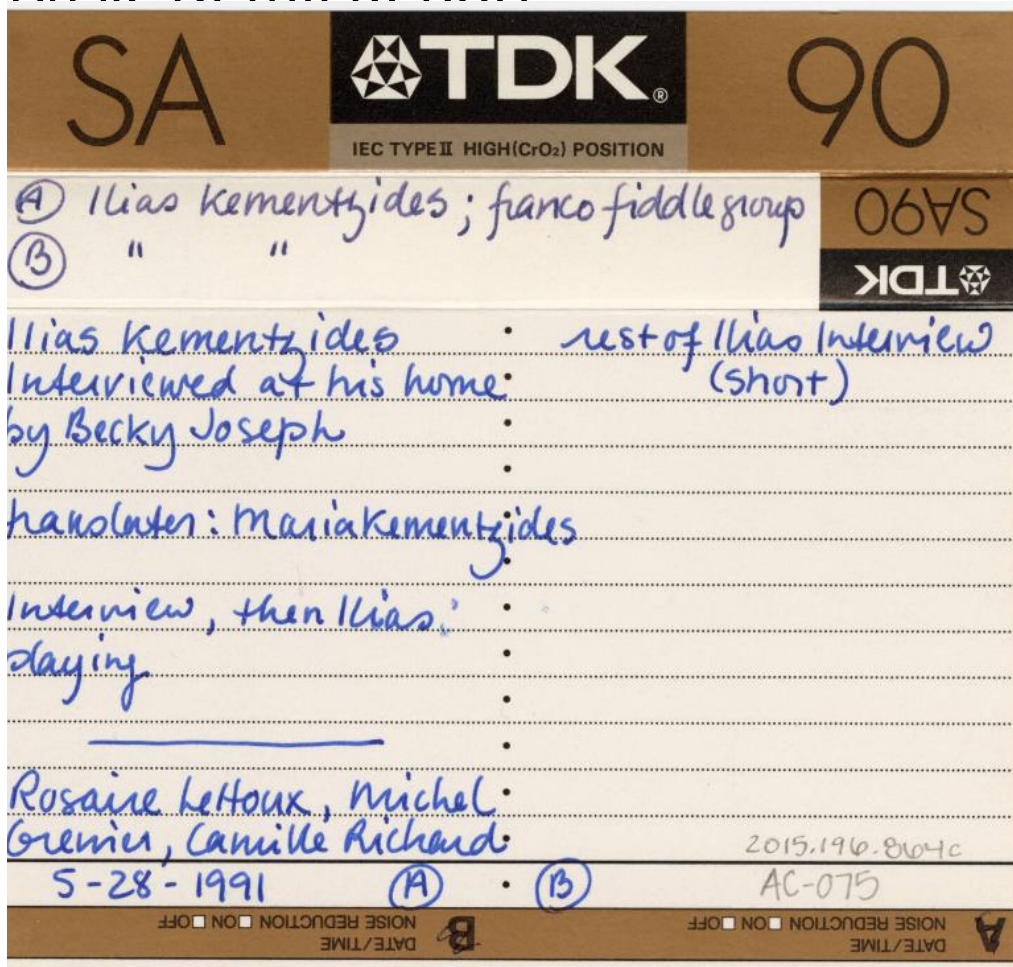 SA TDK® 90
IEC TYPE II HIGH(CrO₂) POSITION
A Ilias Kementzides; franco fiddle group
B " "
SA90
TDK
Ilias Kementzides
Interviewed at his home
by Becky Joseph
translater: Maria Kementzides
Interview, then Ilias
playing
Rosaire Lehoux, Michel
Grenier, Camille Richard
5-28-1991 A
rest of Ilias Interview
(short)
2015.196.864c
B AC-075
A DATE/TIME
NOISE REDUCTION ON OFF
B DATE/TIME
NOISE REDUCTION ON OFF